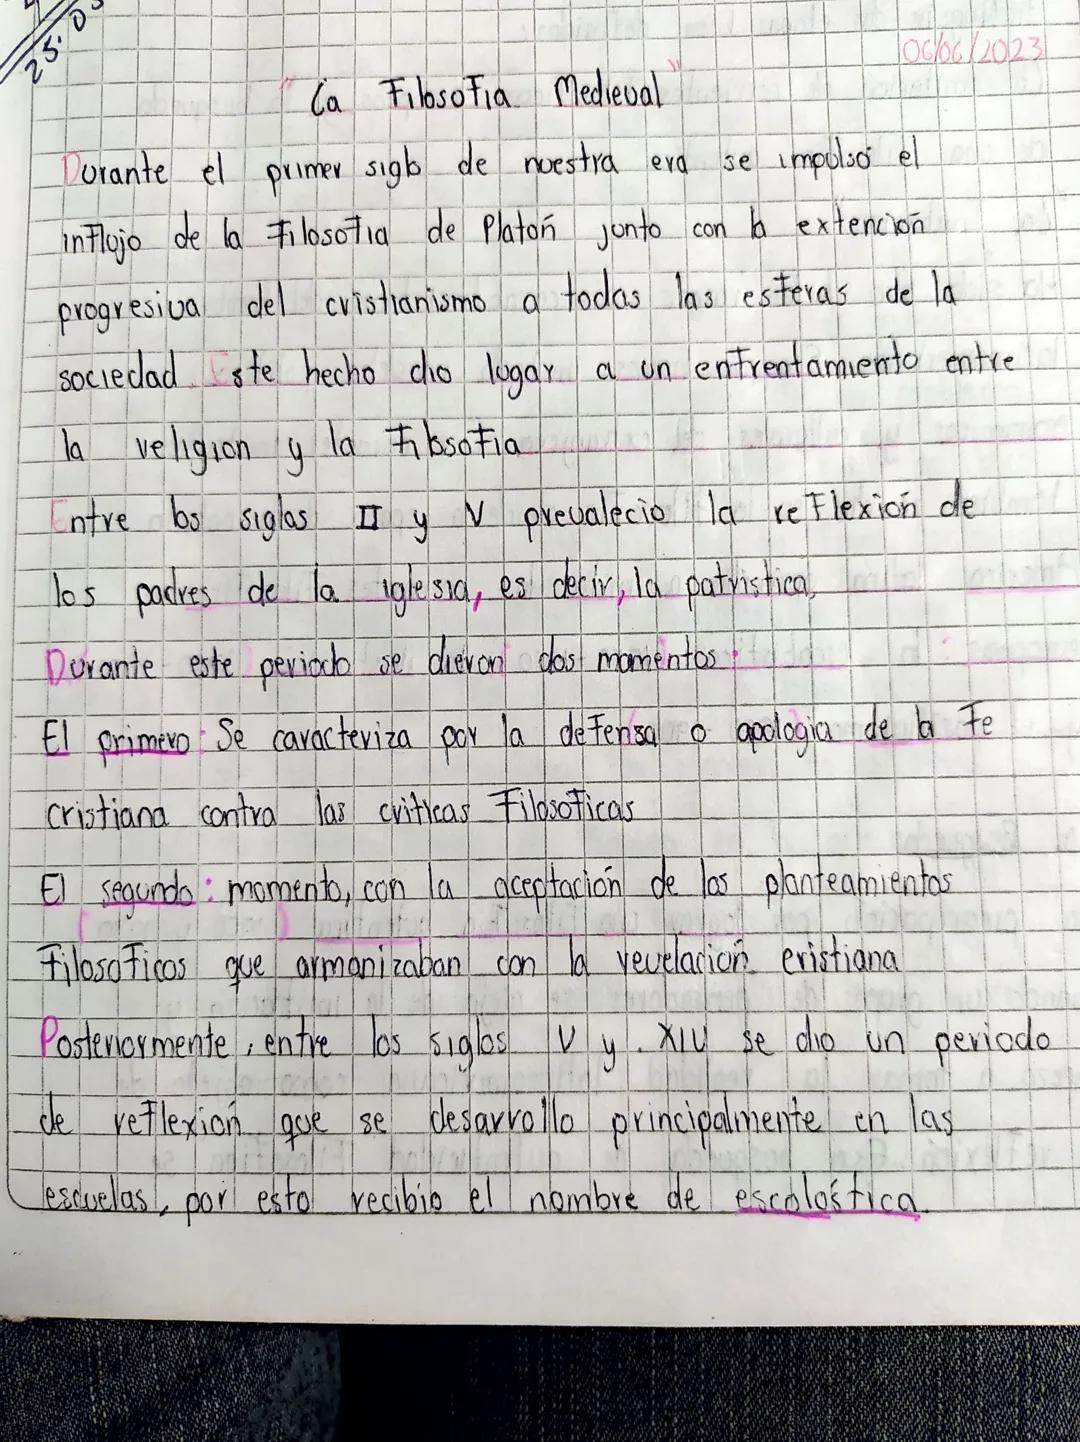 25.0
06/06/2023
"La Filosofia Medieval"
Durante el primer siglo de nuestra era se impulsó el
influjo de la Filosofia de Platón junto con la extención
progresiva del cristianismo a todas las esferas de la
sociedad Este hecho dio lugar a un enfrentamiento entre
la religion y la Filosofia
Entre los siglos II y V prevalecio la reflexión de
los padres de la iglesia, es decir, la patristica,
Durante este periodo se dieron dos momentos:
El primero: Se caracteriza por la defensa o apologia de la Fe
cristiana contra las criticas Filosoficas
El segundo: momento, con la aceptación de los planteamientos
Filosoficos que armonizaban con la revelación cristiana
Posteriormente, entre los siglos V y XIV se dio un periodo
de reflexión que se desarrollo principalmente en las
escuelas, por esto recibio el nombre de escolástica.